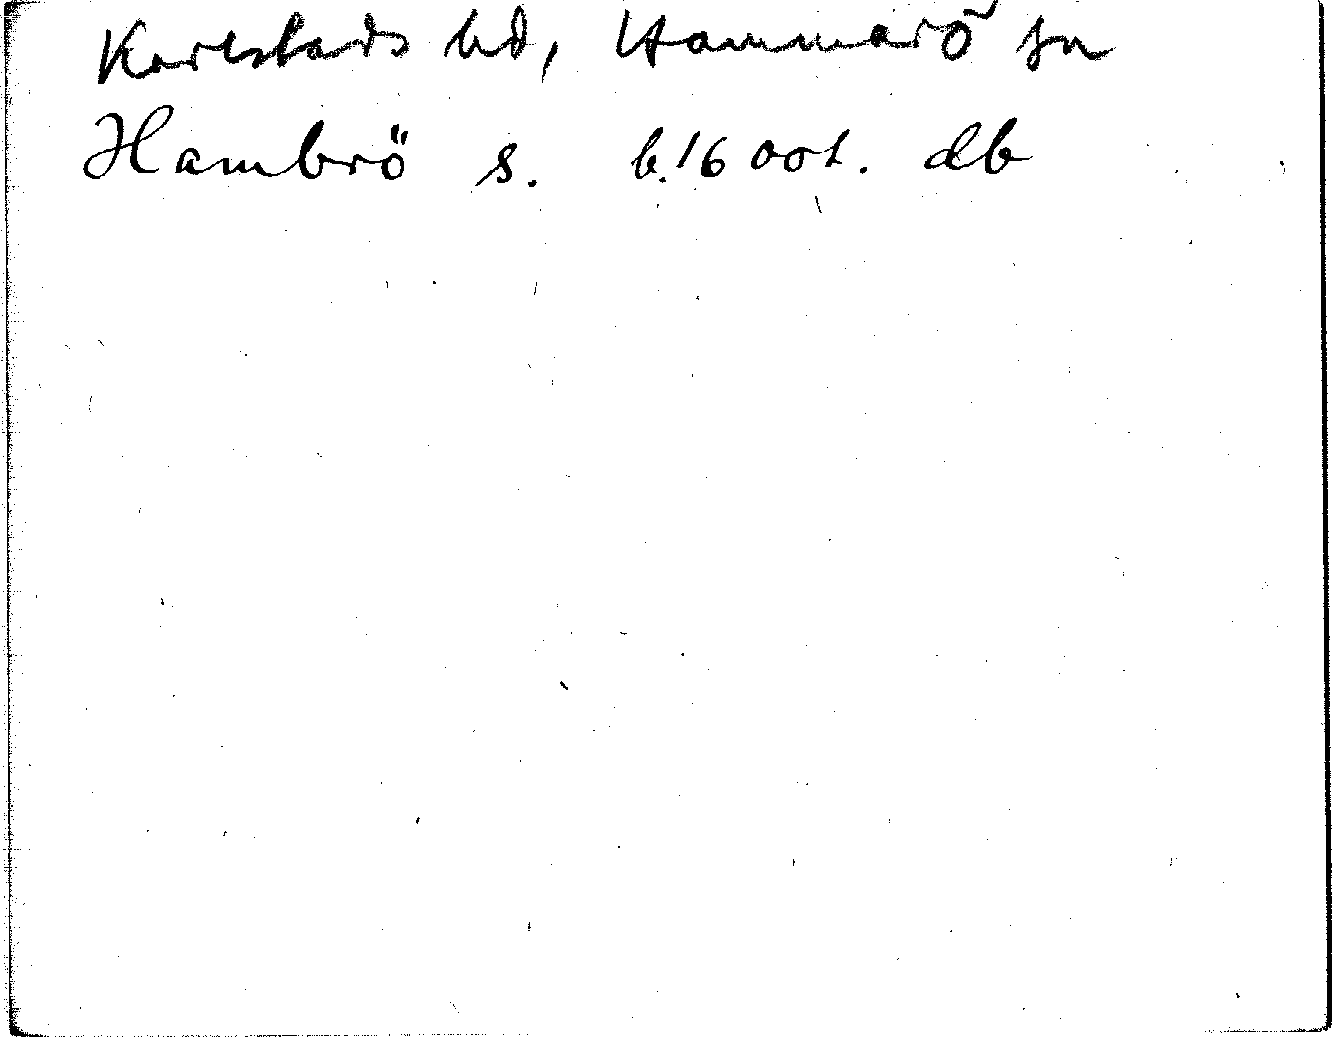 Karlstads hd, Hammarö sn
Hambrö s. b. 16 oot. db